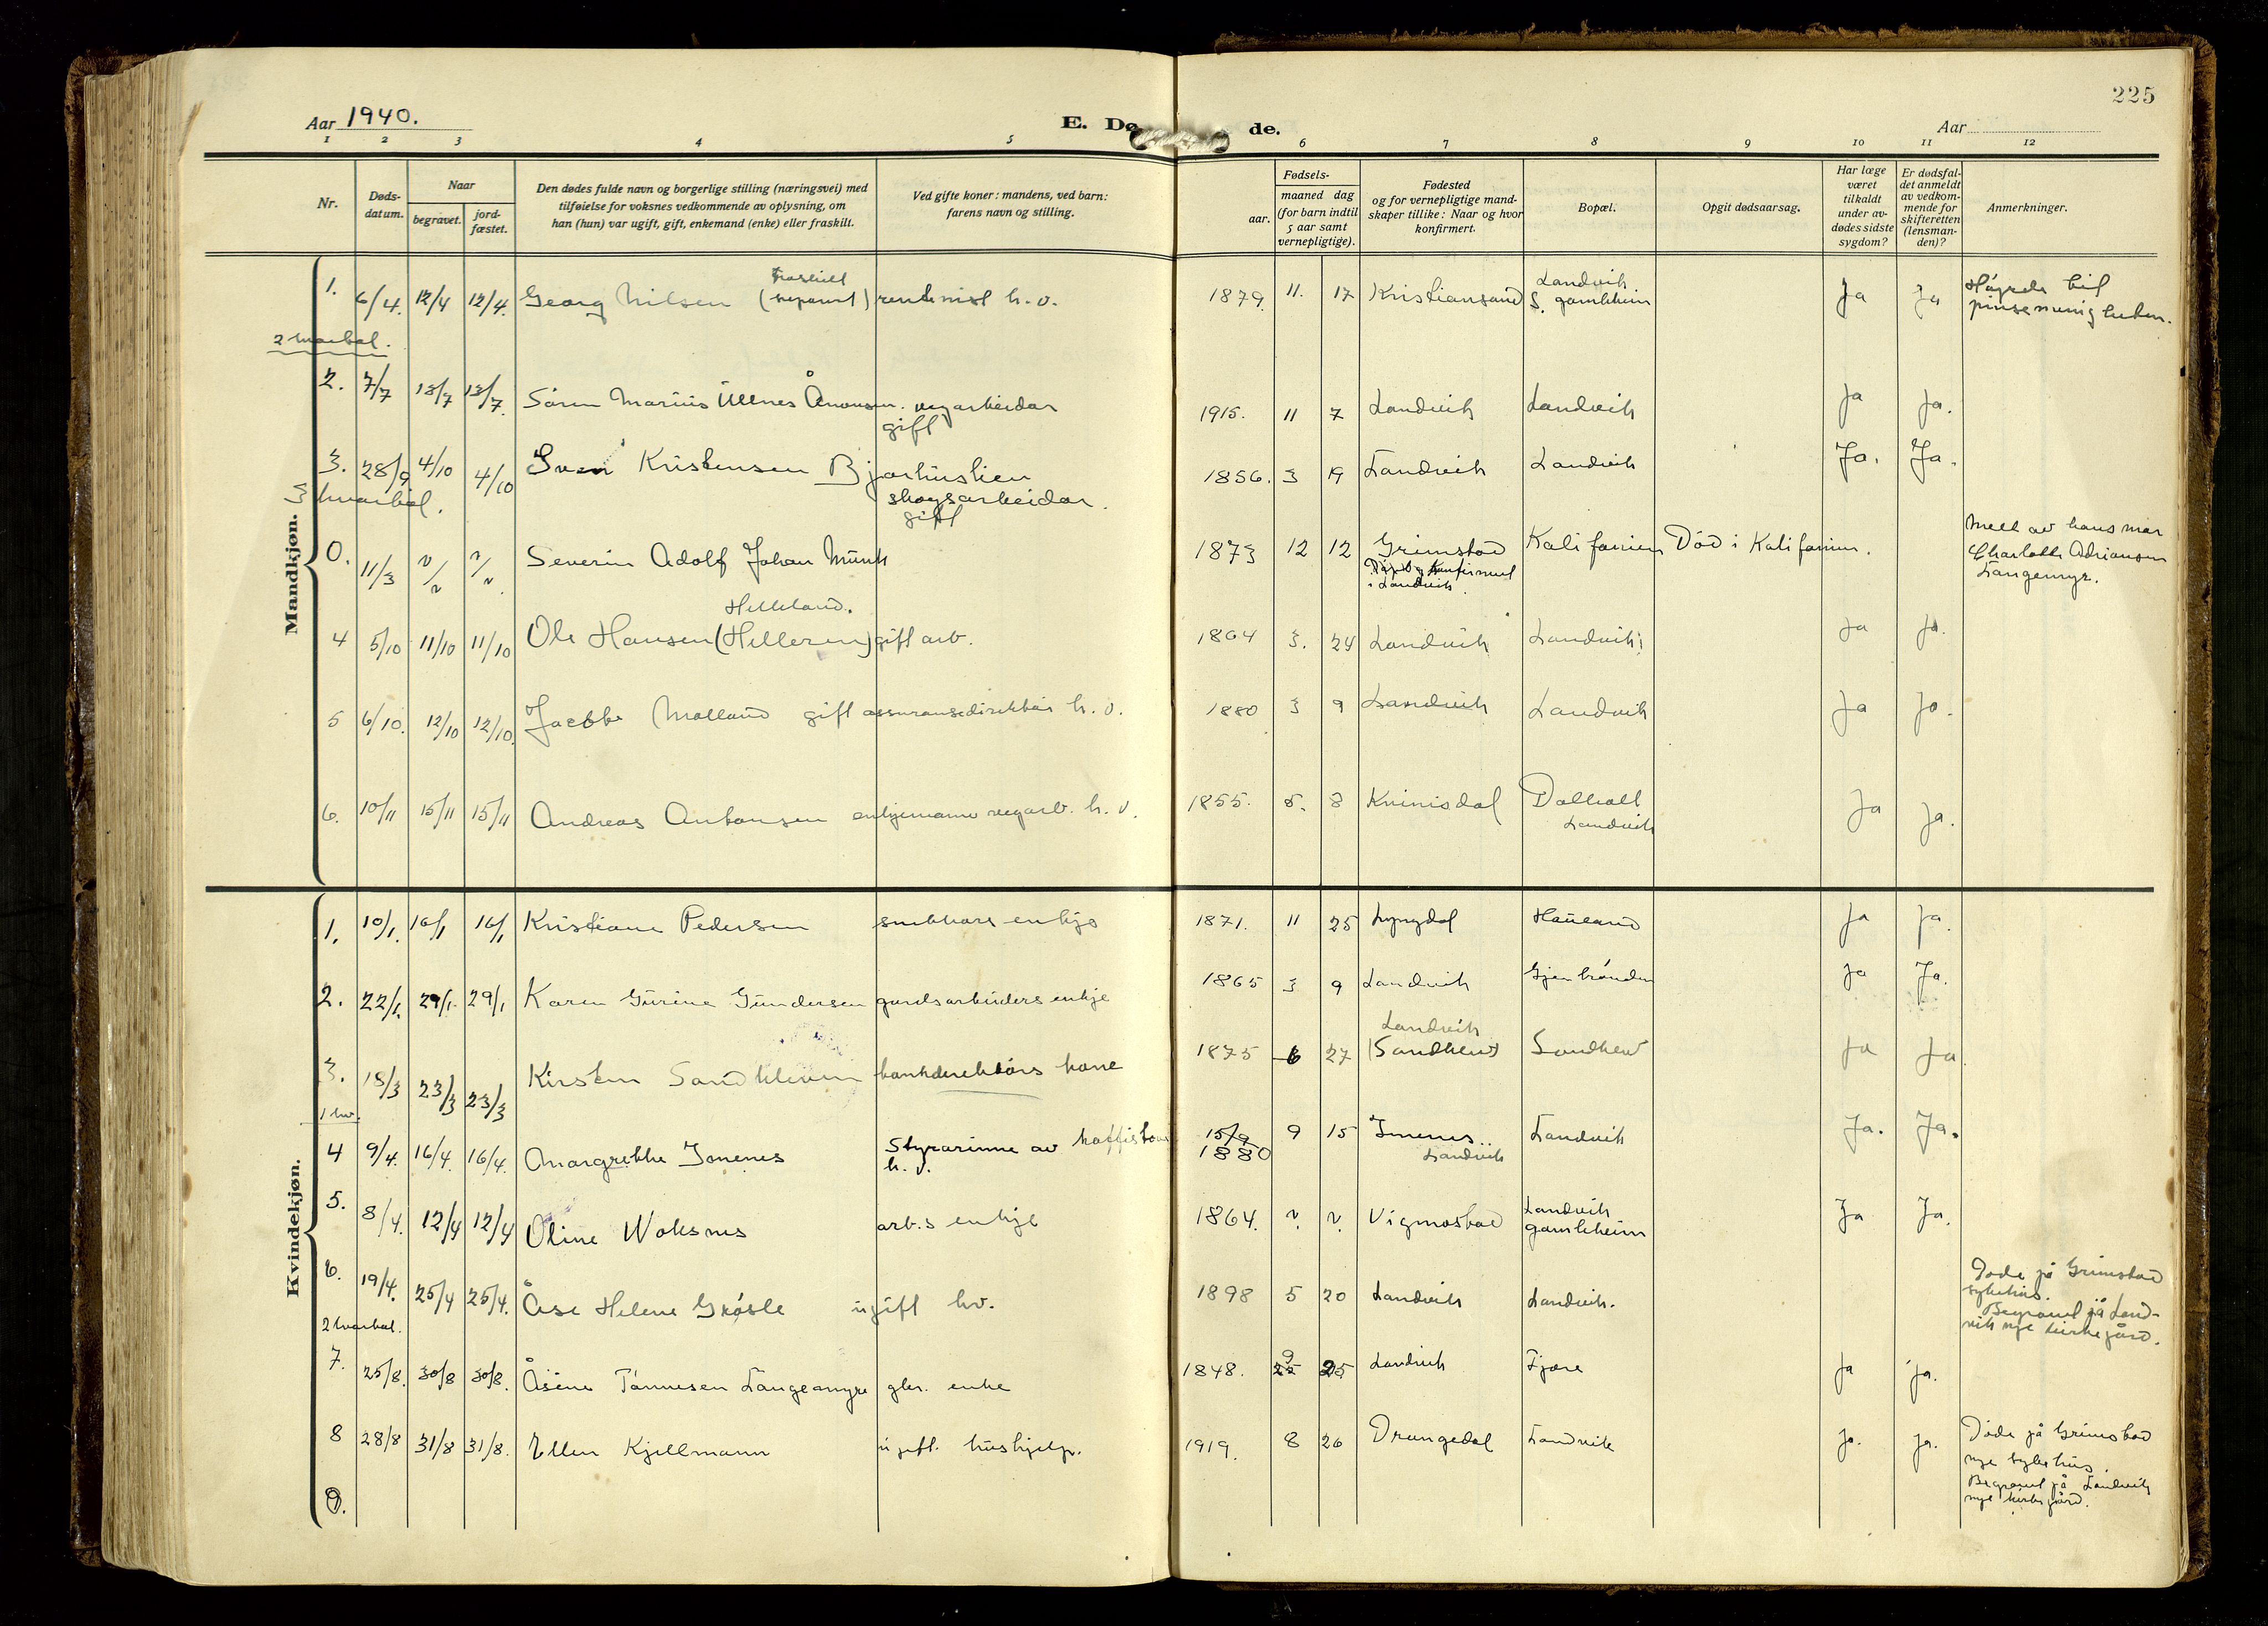 225
Aar 1940.
E. Dø de.
Aar
1 2 3 4 5 6 7 8 9 10 11 12
Nr.
Døds-
datum.
Naar
begravet.
jord-
fæstet.
Den dødes fulde navn og borgerlige stilling (næringsvei) med
tilføielse for voksnes vedkommende av oplysning, om
han (hun) var ugift, gift, enkemand (enke) eller fraskilt.
Ved gifte koner: mandens, ved barn:
farens navn og stilling.
Fødsels-
aar.
maaned dag
(for barn indtil
5 aar samt
vernepligtige).
Fødested
og for vernepligtige mand-
skaper tillike: Naar og hvor
konfirmert.
Bopæl.
Opgit dødsaarsag.
Har læge
været
tilkaldt
under av-
dødes sidste
sygdom?
Er dødsfal-
det anmeldt
av vedkom-
mende for
skifteretten
(lensman-
den)?
Anmerkninger.
Mandkjøn.
fraskilt Landvik
1. 6/4. 12/4 12/4. Georg Nilsen (separert) h.v. 1879. 11. 17 Kristiansand S. gamleheim Ja Ja Høyrde til
pinsemenigheden.
2 kvartal.
2. 7/7 13/7 13/7. Søren Marius Ullnes Ånonsen. vegarbeidar 1915. 11 7 Landvik Landvik Ja Ja.
gift
3. 28/9 4/10 4/10 Sven Kristensen Bjorhuslien 1856. 3 19 Landvik Landvik Ja. Ja.
3 kvartal. skogsarbeidar.
gift
0. 11/3 Severin Adolf Johan Munk 1873 12 12 Grimstad Kalifornien Død i Kalifornien. Meld av hans mor
Døpt og konfirmert Charlotte Adriansen
i Landvik. Langemyr.
Helleland.
4 5/10 11/10 11/10 Ole Hansen (Helleren) gift arb. 1864 3. 24 Landvik Landvik Ja Ja.
5 6/10. 12/10 12/10. Jacobbe Molland gift assuransedirektør h.v. 1880 3 9 Landvik Landvik Ja Ja.
6. 10/11 15/11 15/11 Andreas Antonsen enkjemann vegarb. h.v. 1855. 5. 8 Kvinisdal Dalholt Ja Ja.
Landvik
Kvindekjøn.
1. 10/1. 16/1 16/1 Kristiane Pedersen snekkars enkje 1871. 11 25 Lyngdal Hauland Ja Ja.
2. 22/1. 29/1. 29/1 Karen Gurine Gundersen gardsarbeiders enkje 1865 3 9 Landvik Gjenbrønden Ja Ja.
Landvik
3. 18/3 23/3 23/3 Kirsten Sandkleven bankdirektørs kone 1875 6 27 (Sandklev) Sandklev Ja Ja.
1 kv.
4 9/4. 16/4. 16/4. Margrethe Imenes Styrarinne av kaffistove 15/9 1880 9 15 Imenes Landvik Ja. Ja.
h.v. Landvik
5. 8/4. 12/4 12/4 Oline Woksnes arb.s enkje 1864. Vigmostad Landvik Ja Ja.
gamleheim
6. 19/4. 25/4 25/4. Åse Helene Grøsle ugift hv. 1898 5 20 Landvik Landvik. Døde på Grimstad
sykehus.
Begravet på Land-
vik nye kirkegård.
2 kvartal.
7. 25/8. 30/8 30/8. Åsine Tønnesen Langemyr gbr. enke 1848. 9 25 Landvik Fjære Ja Ja.
8 28/8 31/8 31/8. Ellen Kjellmann ugift. hushjelp. 1919. 8 26 Drangedal Landvik Ja. Ja. Døde på Grimstad
nye sykehus.
Begravet på Landvik
nye kirkegård.
9.